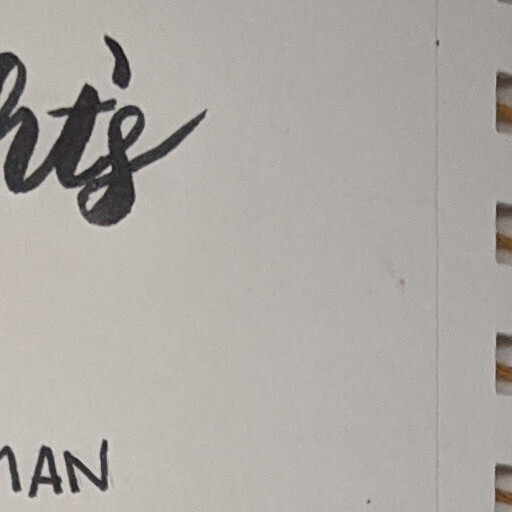 ht's
MAN